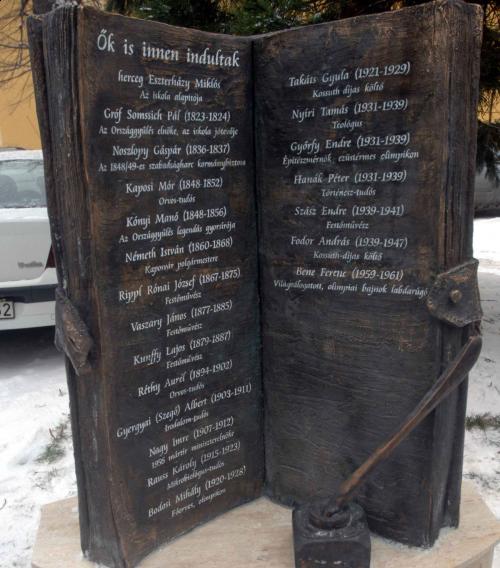 Ők is innen indultak
herceg Eszterházy Miklós
Az iskola alapítója
Gróf Somssich Pál (1823-1824)
Az Országgyűlés elnöke, az iskola jótevője
Noszlopy Gáspár (1836-1837)
Az 1848/49-es szabadságharc kormánybiztosa
Kaposi Mór (1848-1852)
Orvos-tudós
Kónyi Manó (1848-1856)
Az Országgyűlés legendás gyorsírója
Németh István (1860-1868)
Kaposvár polgármestere
Rippl Rónai József (1867-1875)
Festőművész
Vaszary János (1877-1885)
Festőművész
Kunffy Lajos (1879-1887)
Festőművész
Réthy Aurél (1894-1902)
Orvos-tudós
Gyergyai (Szegő) Albert (1903-1911)
Irodalom-tudós
Nagy Imre (1907-1912)
1956 mártír miniszterelnöke
Rauss Károly (1915-1923)
Mikrobiológus-tudós
Bodosi Mihály (1920-1928)
Főorvos, olimpikon
Takáts Gyula (1921-1929)
Kossuth díjas költő
Nyíri Tamás (1931-1939)
Teológus
Győrfy Endre (1931-1939)
Építészmérnök, ezüstérmes olimpikon
Hanák Péter (1931-1939)
Történész-tudós
Szász Endre (1939-1941)
Festőművész
Fodor András (1939-1947)
Kossuth-díjas költő
Bene Ferenc (1959-1961)
Világválogatott, olimpiai bajnok labdarúgó
52